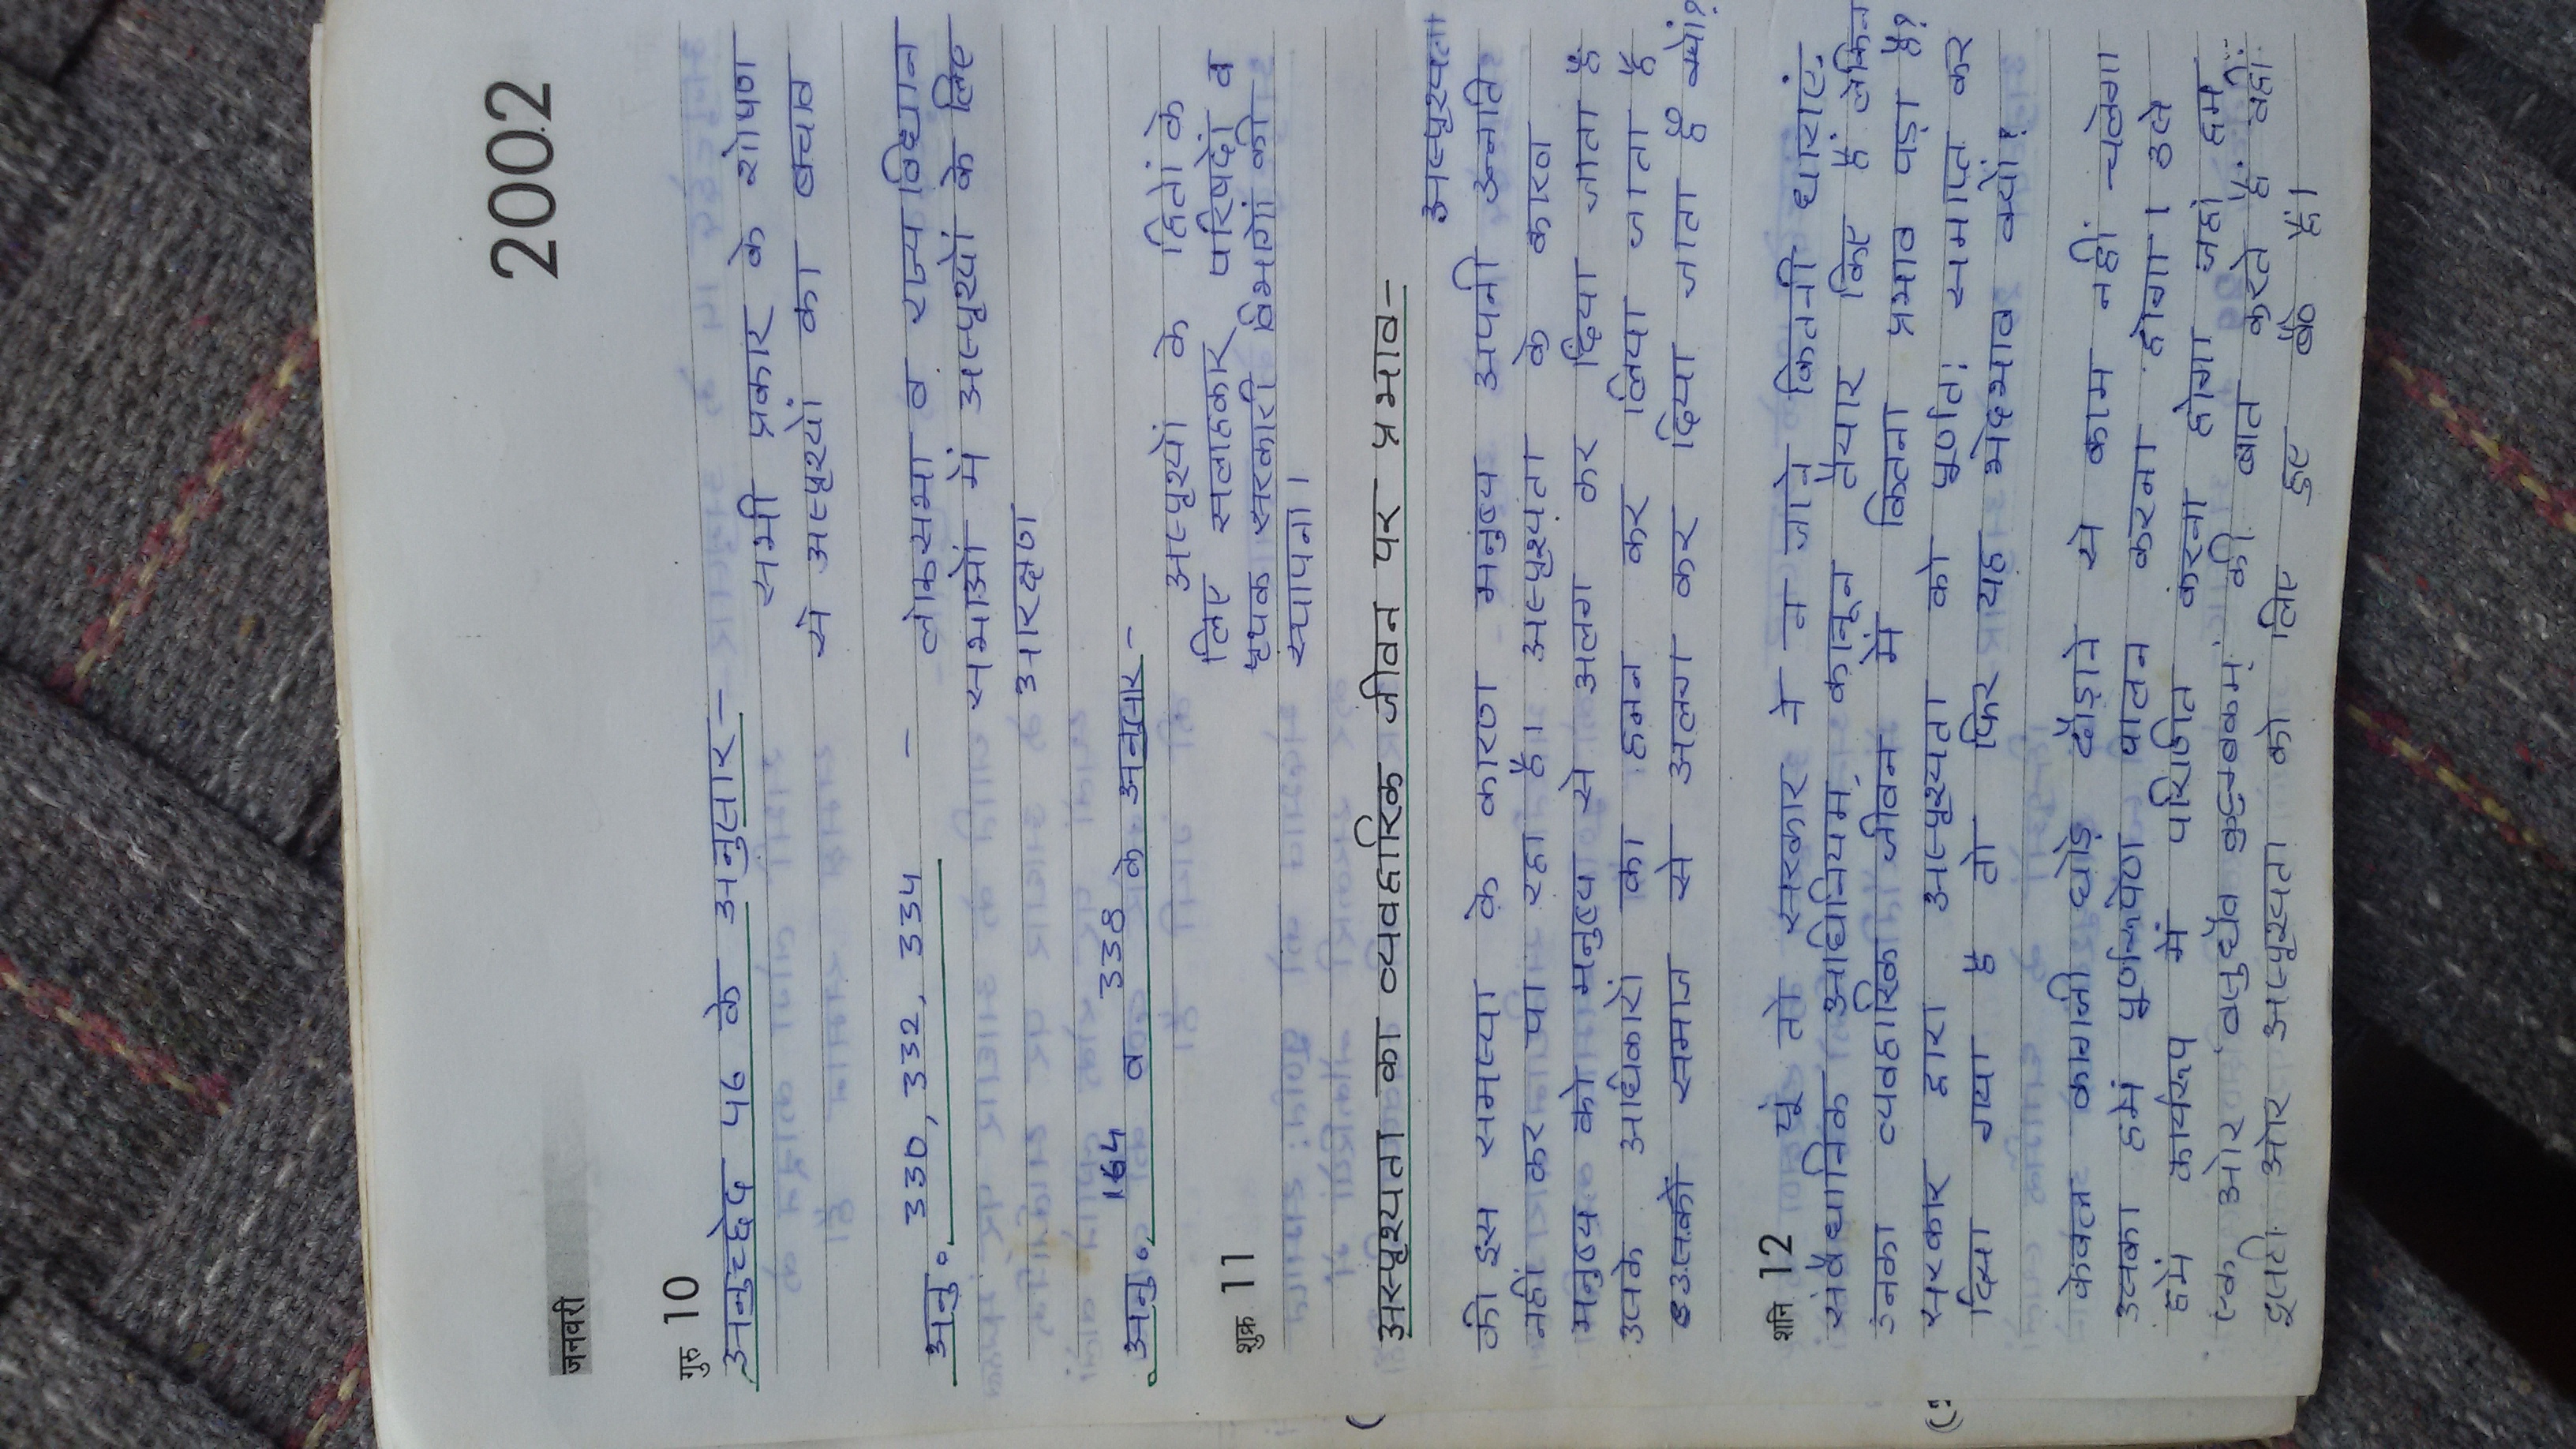 जनवरी 2002
गुरु 10
अनुच्छेद 46 के अनुसार -
सभी प्रकार के शोषण
से अस्पृश्यों का बचाव
अनु० 330, 332, 334 -
लोकसभा व राज्य विधान
सभाओं में अस्पृश्यों के लिए
आरक्षण
अनु० 164 व 338 के अनुसार -
शुक्र 11
अस्पृश्यों के हितों के
लिए सलाहकार परिषदों व
पृथक सरकारी विभागों की
स्थापना।
अस्पृश्यता का व्यवहारिक जीवन पर प्रभाव-
अस्पृश्यता
की इस समस्या के कारण मनुष्य अपनी उन्नति
नहीं कर पा रहा है। अस्पृश्यता के कारण
मनुष्य को मनुष्य से अलग कर दिया जाता है
उनके अधिकारों का हनन कर लिया जाता है
उनको समाज से अलग कर दिया जाता है क्यों?
शनि 12
यूं तो सरकार ने न जाने कितनी धाराएं,
संवैधानिक अधिनियम, कानून तैयार किए हैं लेकिन
उनका व्यवहारिक जीवन में कितना प्रभाव पड़ा है?
सरकार द्वारा अस्पृश्यता को पूर्णत: समाप्त कर
दिया गया है तो फिर यह भेदभाव क्यों?
केवल कागजी घोड़े दौड़ाने से काम नहीं चलेगा
उनका हमें पूर्णरूपेण पालन करना होगा। उसे
हमें कार्यरूप में परिणित करना होगा जहां हम
एक ओर वसुधैव कुटुम्बकम् की बात करते हैं वहीं
दूसरी ओर अस्पृश्यता को लिए हुए बैठे हैं।